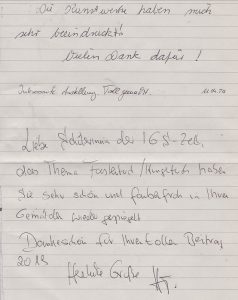 Die Kunstwerke haben mich
sehr beeindruckt!
Vielen Dank dafür!
Interessante Ausstellung. Toll gemacht.
Liebe Schülerinnen der IGS-Zell,
das Thema haben
Sie sehr schön und farbenfroh in Ihren
Gemälden wieder gespiegelt
Dankeschön für Ihren tollen Beitrag
2019
Herzliche Grüße